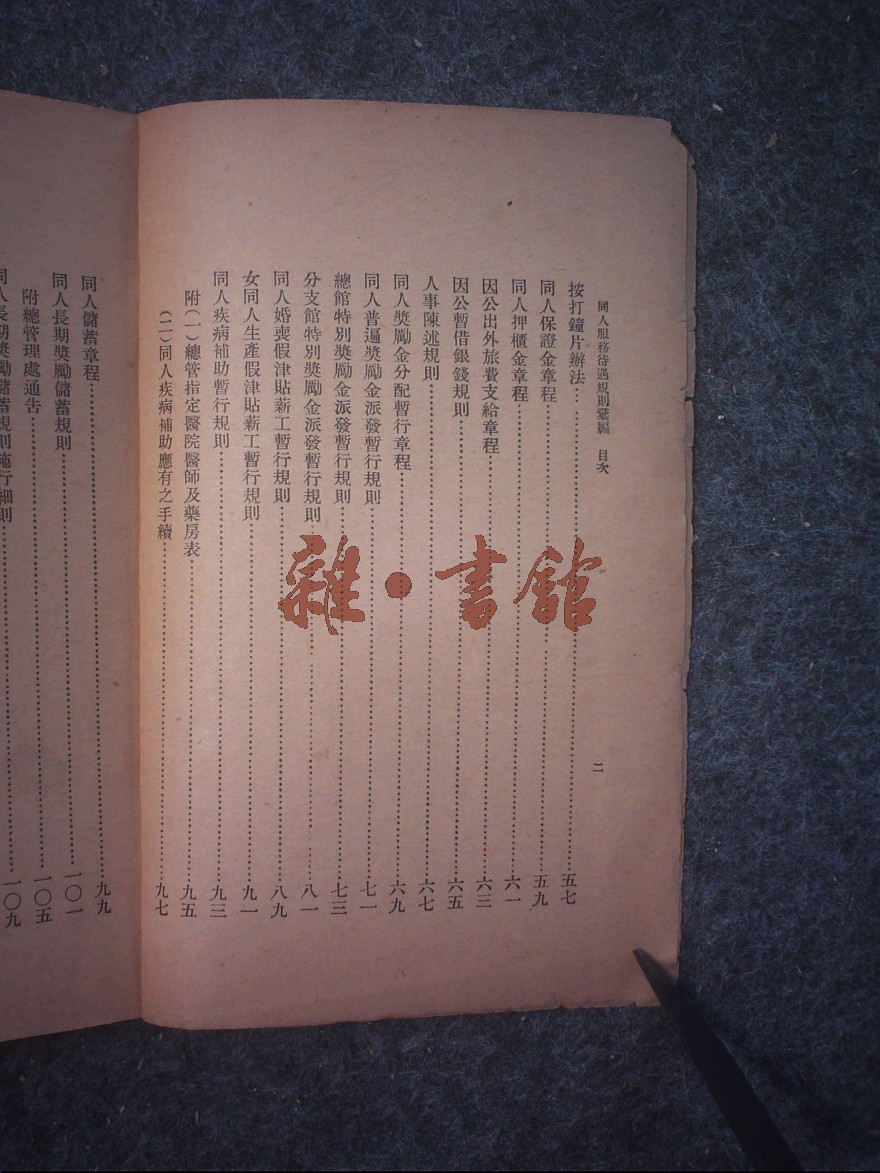 同人服務待遇規則彙編　目次
二
按打鐘片辦法……五七
同人保證金章程……五九
同人押櫃金章程……六一
因公出外旅費支給章程……六三
因公暫借銀錢規則……六五
人事陳述規則……六七
同人獎勵金分配暫行章程……六九
同人普遍獎勵金派發暫行規則……七一
總館特別獎勵金派發暫行規則……七三
分支館特別獎勵金派發暫行規則……八一
同人婚喪假津貼薪工暫行規則……八九
女同人生產假津貼薪工暫行規則……九一
同人疾病補助暫行規則……九三
附(一)總管指定醫院醫師及藥房表……九五
(二)同人疾病補助應有之手續……九七
同人儲蓄章程……九九
同人長期獎勵儲蓄規則……一〇一
附總管理處通告……一〇五
同人長期獎勵儲蓄規則施行細則……一〇九
雜·書館